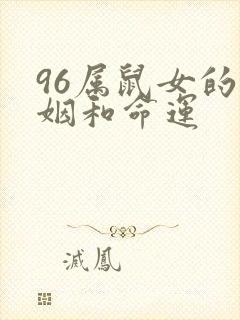 96属鼠女的
姻和命运
滅鳳